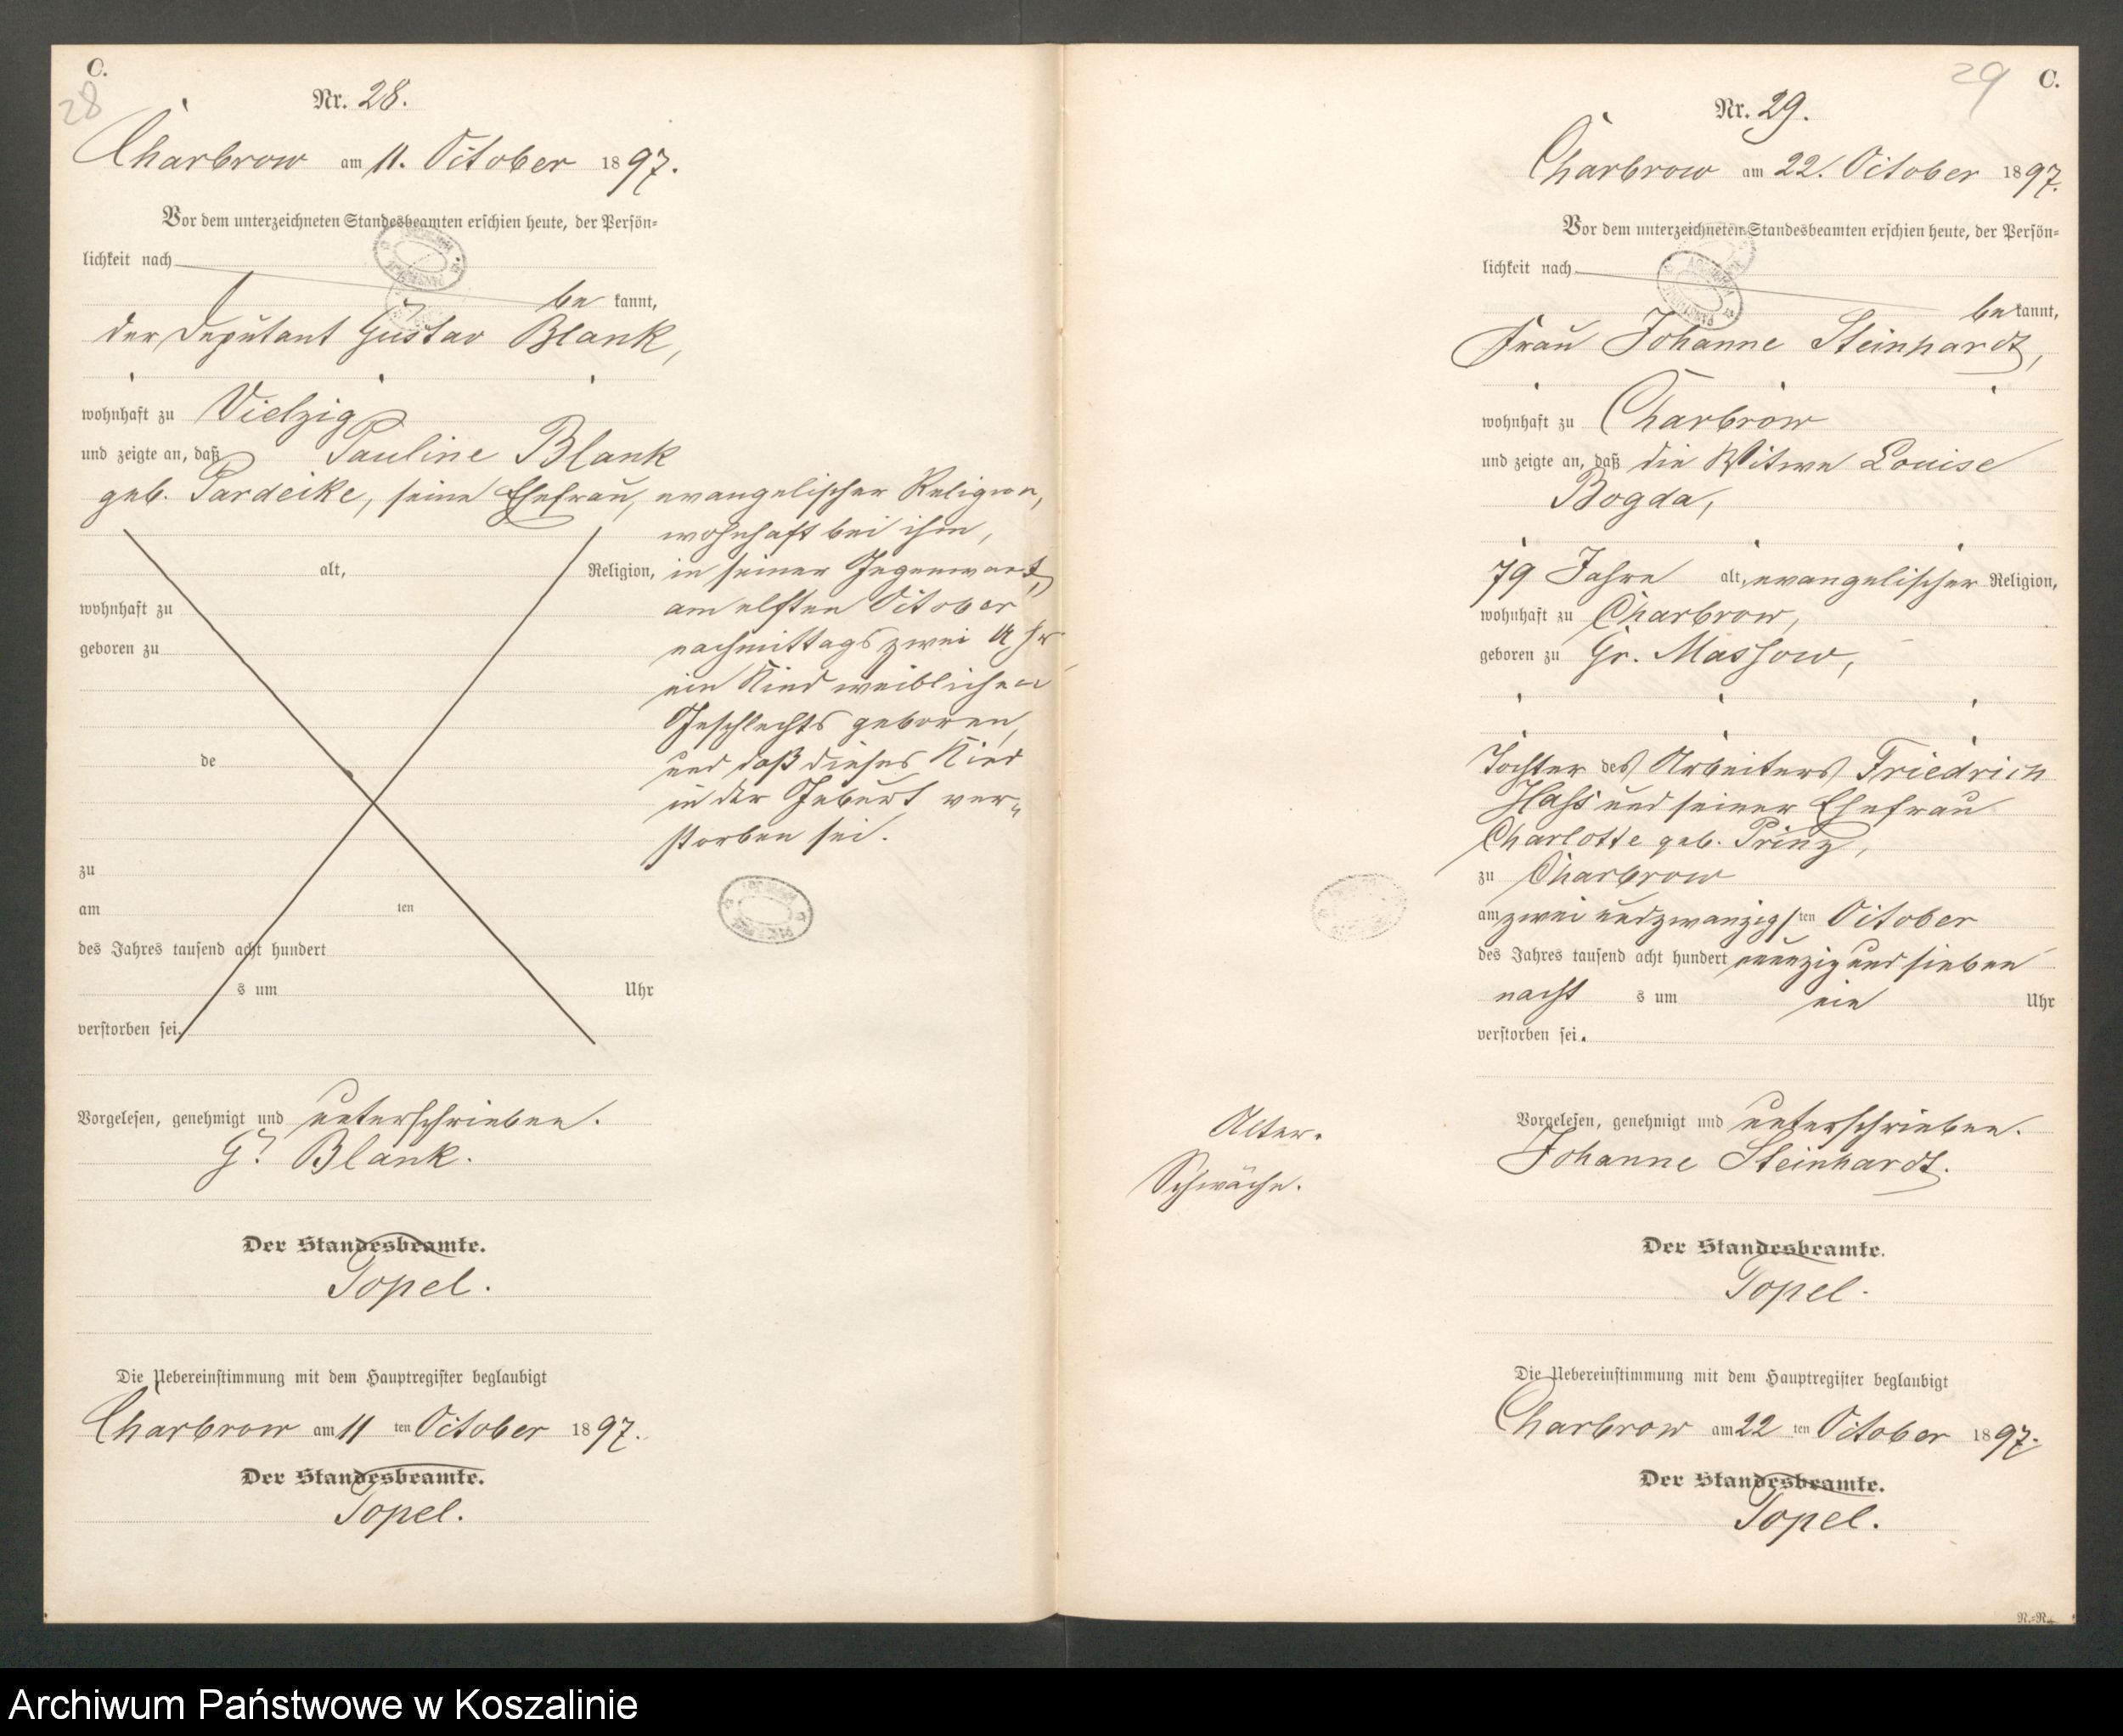 C.
28
Nr. 28.
Charbrow am 11. October 1897.
Vor dem unterzeichneten Standesbeamten erschien heute, der Persön-
lichkeit nach
be kannt,
der Deputant Gustav Blank,
wohnhaft zu Vietzig
und zeigte an, daß Pauline Blank
geb. Pardeike, seine Ehefrau, evangelischer Religion,
wohnhaft bei ihm,
alt, Religion, in seiner Gegenwart,
wohnhaft zu am elften October
geboren zu nachmittags zwei Uhr
ein Kind weiblichen
Geschlechts geboren,
de und daß dieses Kind
in der Geburt ver-
storben sei.
zu
am ten
des Jahres tausend acht hundert
s um Uhr
verstorben sei.
Vorgelesen, genehmigt und unterschrieben.
G. Blank.
Der Standesbeamte.
Topel.
Die Uebereinstimmung mit dem Hauptregister beglaubigt
Charbrow am 11 ten October 1897.
Der Standesbeamte.
Topel.
29
C.
Nr. 29.
Charbrow am 22. October 1897.
Vor dem unterzeichneten Standesbeamten erschien heute, der Persön-
lichkeit nach
be kannt,
Frau Johanne Steinhardt,
wohnhaft zu Charbrow
und zeigte an, daß die Witwe Louise
Bogda,
79 Jahre alt, evangelischer Religion,
wohnhaft zu Charbrow,
geboren zu Gr. Massow,
Tochter des Arbeiters Friedrich
Hass und seiner Ehefrau
Charlotte geb. Prinz,
zu Charbrow
am zwei und zwanzigsten October
des Jahres tausend acht hundert neunzig und sieben
nacht s um ein Uhr
verstorben sei.
Alter.
Schwäche.
Vorgelesen, genehmigt und unterschrieben.
Johanne Steinhardt.
Der Standesbeamte.
Topel.
Die Uebereinstimmung mit dem Hauptregister beglaubigt
Charbrow am 22 ten October 1897.
Der Standesbeamte.
Topel.
N.=R.
Archiwum Państwowe w Koszalinie